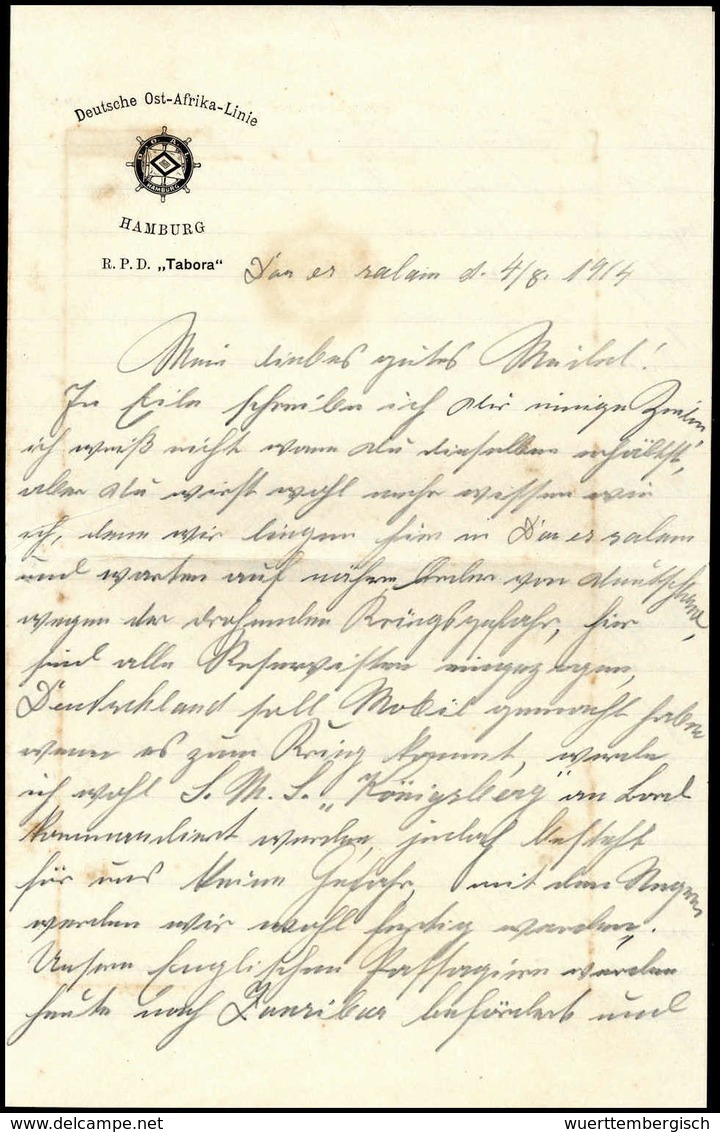 Deutsche Ost-Afrika-Linie
D O A L
HAMBURG
HAMBURG
R. P. D. „Tabora“
Dar es salam d. 4/8. 1914
Mein liebes gutes Weibel!
In Eile schreibe ich dir einige Zeilen
ich weiß nicht wann du dieselben erhältst,
aber du wirst wohl mehr wissen wie
ich, denn wir liegen hier in Dar es salam
und warten auf nähre Order von Deutschland,
wegen der drohenden Kriegsgefahr, hier
sind alle Reservisten eingezogen,
Deutschland soll Mobil gemacht haben
wenn es zum Krieg kommt, werde
ich wohl S. M. S. „Königsberg“ an Bord
kommandiert werden, jedoch besteht
für uns keine Gefahr, mit den Negern
werden wir wohl fertig werden.
Unsere Englischen Passagiere werden
heute nach Zanzibar befördert und
delcampe.net
wuerttembergisch